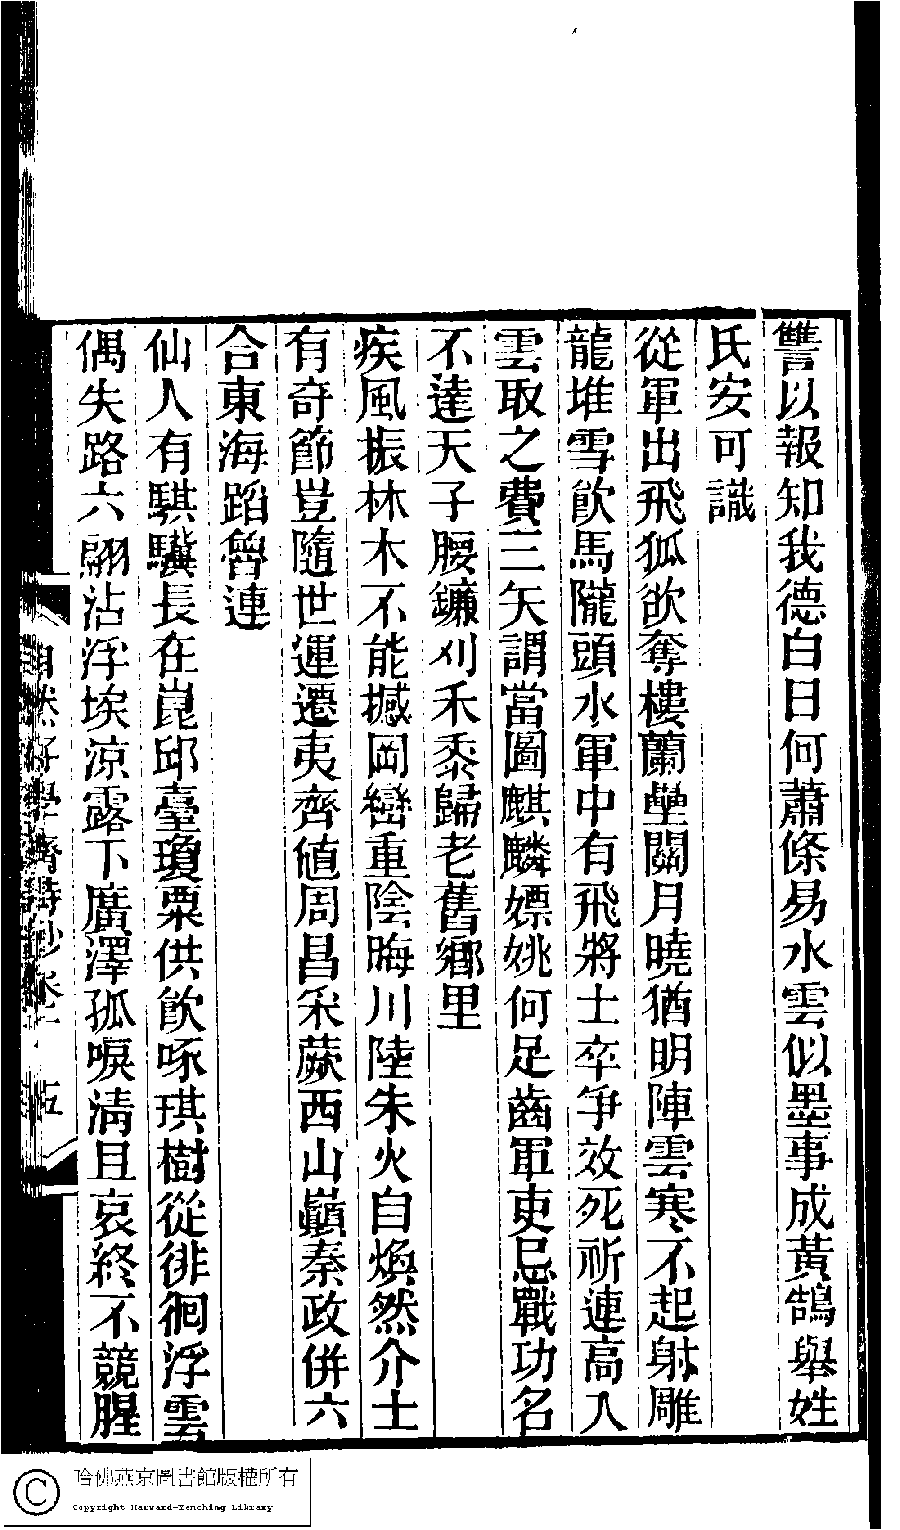 讐以報知我德白日何蕭條易水雲似墨事成黃鵠舉姓
氏安可識
從軍出飛狐欲奪樓蘭壘關月曉猶明陣雲寒不起射雕
龍堆雪飮馬隴頭水軍中有飛將士卒爭效死祈連高入
雲取之費三矢謂當圖麒麟嫖姚何足齒軍吏忌戰功名
不達天子腰鐮刈禾黍歸老舊鄉里
疾風振林木不能撼岡巒重陰晦川陸朱火自煥然介士
有奇節豈隨世運遷夷齊値周昌釆蕨西山巔秦政併六
合東海蹈魯連
仙人有騏驥長在崑邱臺瓊粟供飮啄琪樹從徘徊浮雲
偶失路六翮沾浮埃涼露下廣澤孤唳淸且哀終不競腥
自然好學齋詩鈔卷一 五
哈佛燕京圖書館版權所有
Copyright Harvard-Yenching Library